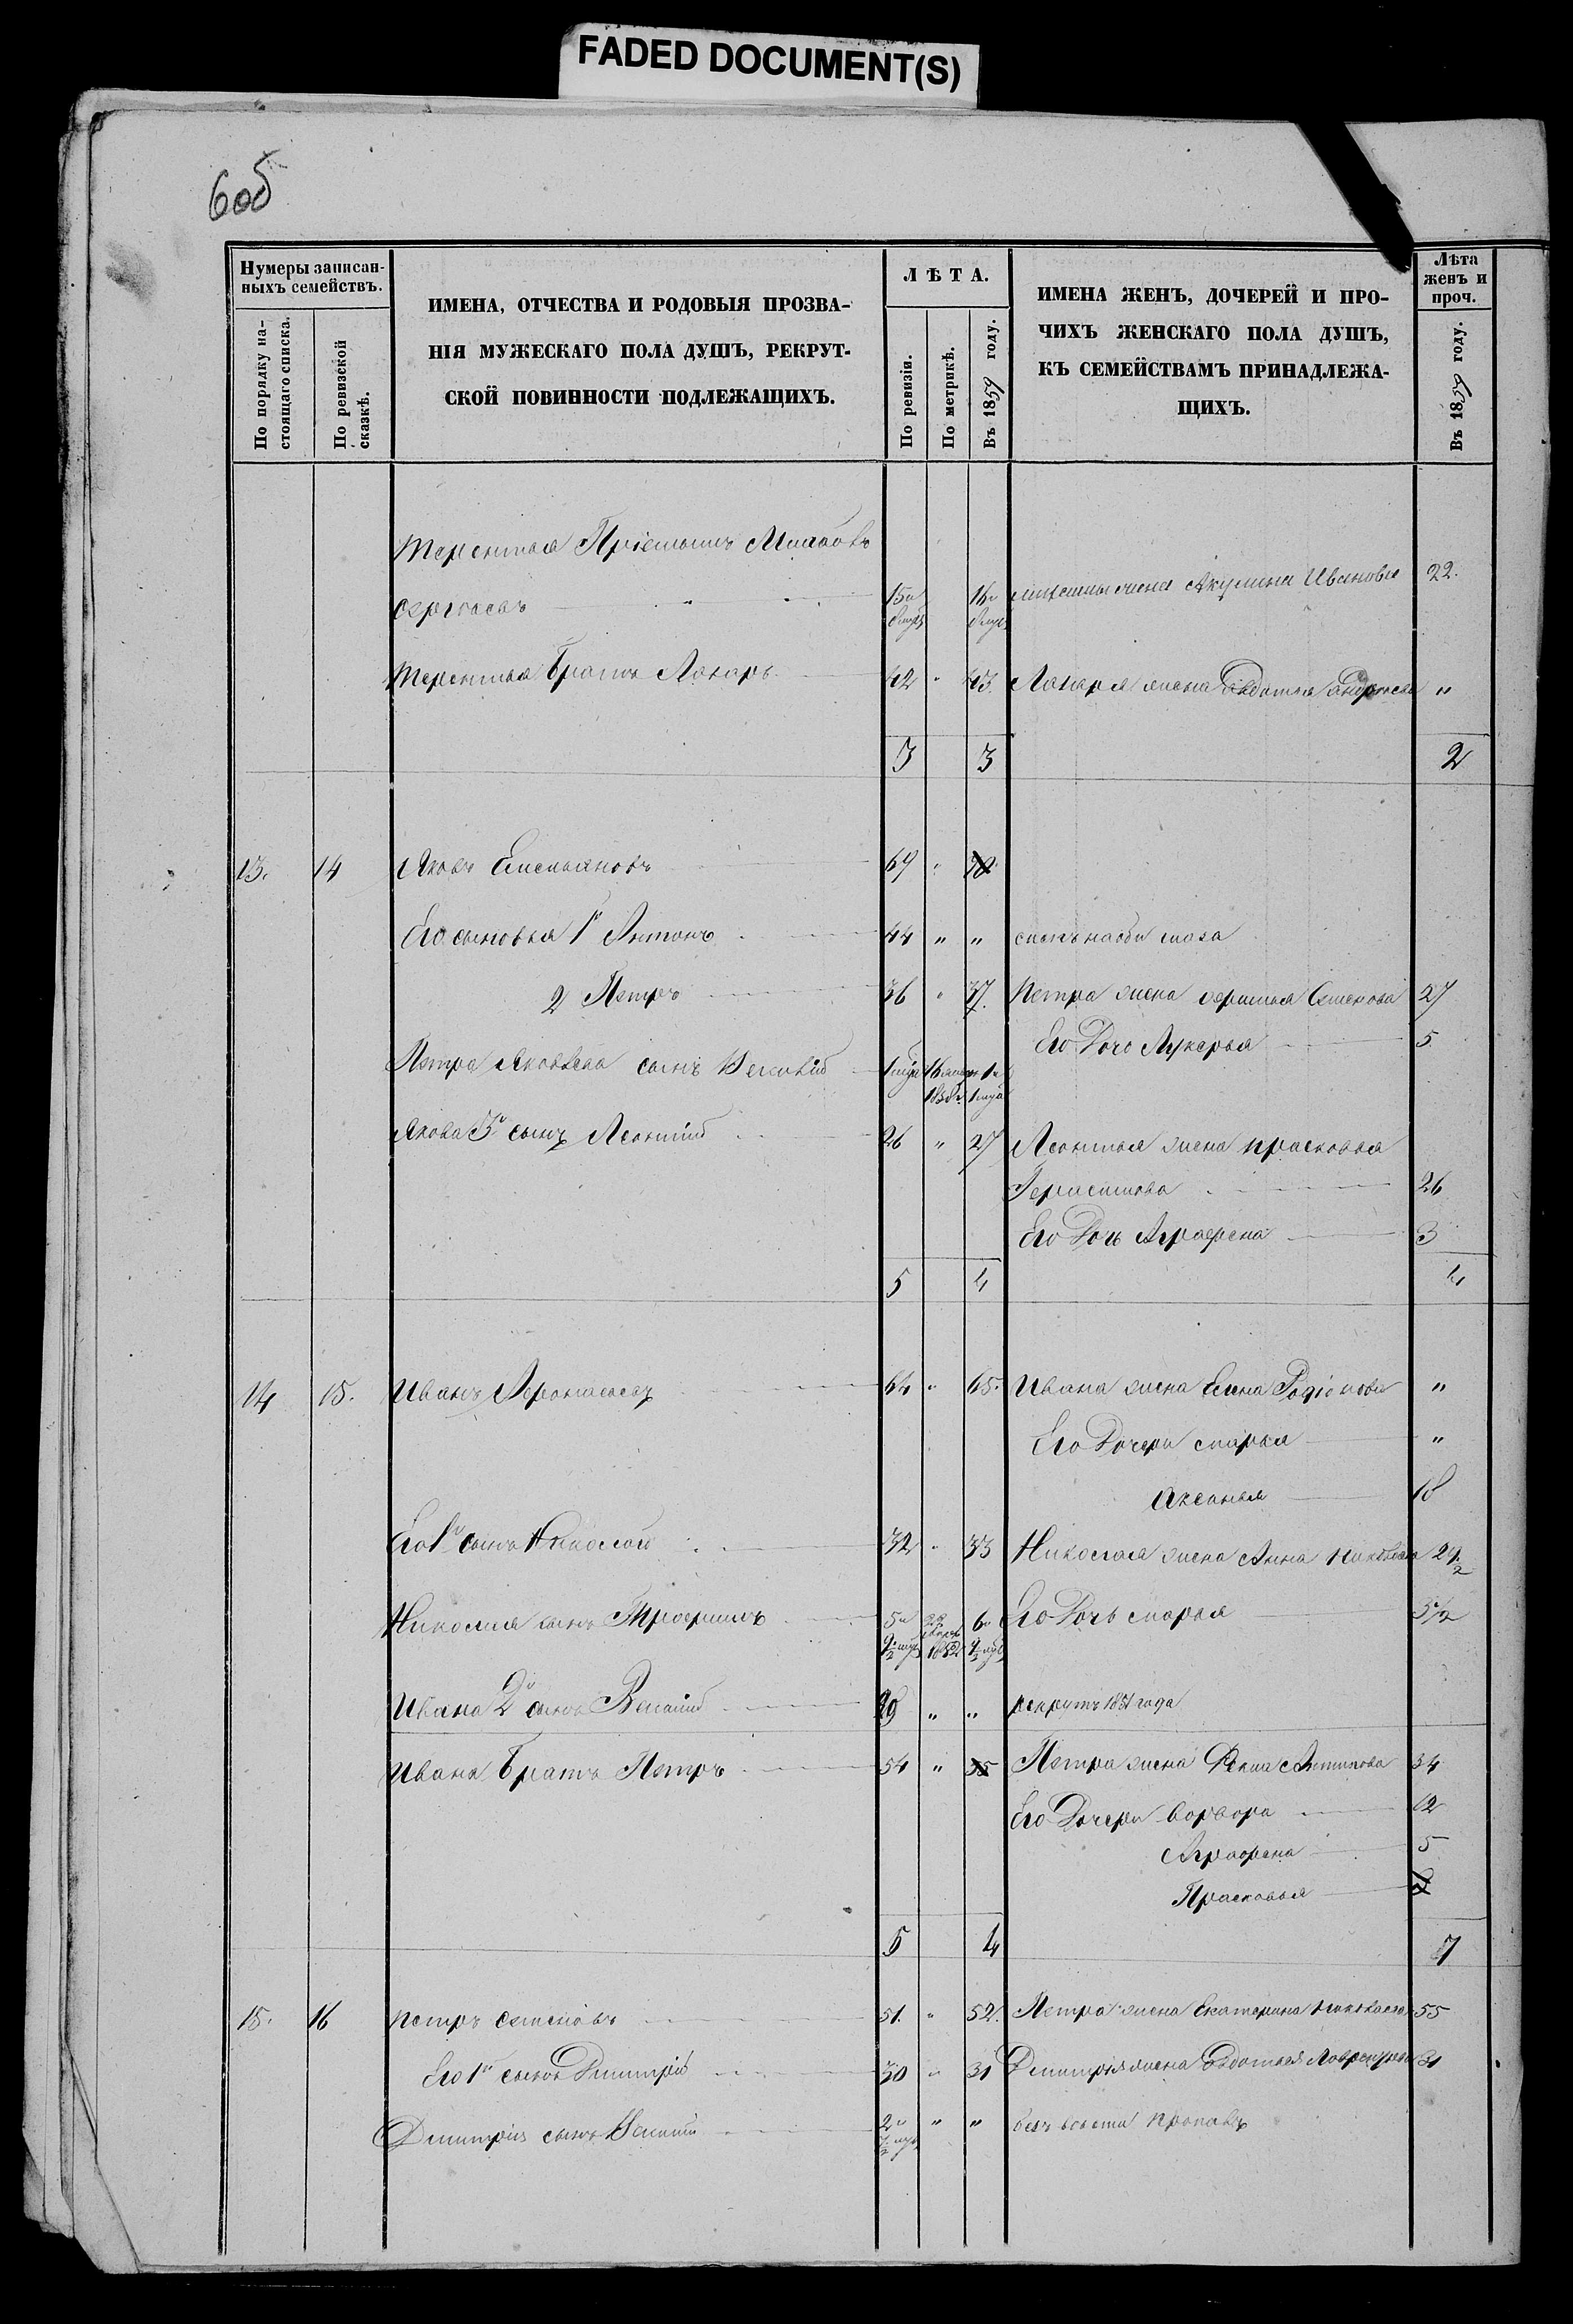 FADED DOCUMENT(S)
6об
Нумеры записан-
ныхъ семействъ.
По порядку на-
стоящаго списка.
По ревизской
сказкѣ.
ИМЕНА, ОТЧЕСТВА И РОДОВЫЯ ПРОЗВА-
НІЯ МУЖЕСКАГО ПОЛА ДУШЪ, РЕКРУТ-
СКОЙ ПОВИННОСТИ ПОДЛЕЖАЩИХЪ.
ЛѢТА.
По ревизіи.
По метрикѣ.
Въ 1859 году.
ИМЕНА ЖЕНЪ, ДОЧЕРЕЙ И ПРО-
ЧИХЪ ЖЕНСКАГО ПОЛА ДУШЪ,
КЪ СЕМЕЙСТВАМЪ ПРИНАДЛЕЖА-
ЩИХЪ.
Лѣта
женъ и
проч.
Въ 1859 году.
Терентья Пріемышъ
Сергѣевъ 15 16 жена Акулина Иванова 22.
Терентья Братъ Лазарь 42 " 43 Лазаря жена Авдотья Андреева "
3 3 2
13. 14 Яковъ Емельяновъ 69 " 70
Его сыновья 1й Антонъ 44 " "
2 Петръ 36 " 37 Петра жена Семенова 27
Его Дочь Лукерья 5
Петра Яковлева сынъ Василій
1858
Якова 3й сынъ Леонтій 26 " 27 Леонтья жена Прасковья
Герасимова 26
Его Дочь Аграфена 3
5 4 4
14 15. Иванъ 64 " 65. Ивана жена Елена Родіонова "
Его Дочери Марья "
Аксинья 18
Его 1й сынъ Николай 32 " 33 Николая жена Анна 29½
Николая сынъ Трофимъ 5 1852 6 Его Дочь Марья 5½
Ивана 2й сынъ Василій " " рекрутъ года
Ивана Братъ Петръ 54 " 55 Петра жена Фекла Антипова 34
Его Дочери Варвара 12
Аграфена 5
Прасковья
5 4 7
15. 16 Петръ Семеновъ 51. " 52. Петра жена Екатерина 55
Его 1й сынъ Дмитрій 30 " 31 Дмитрія жена Авдотья 31
Дмитрія сынъ 2 " " безъ вѣсти пропавъ